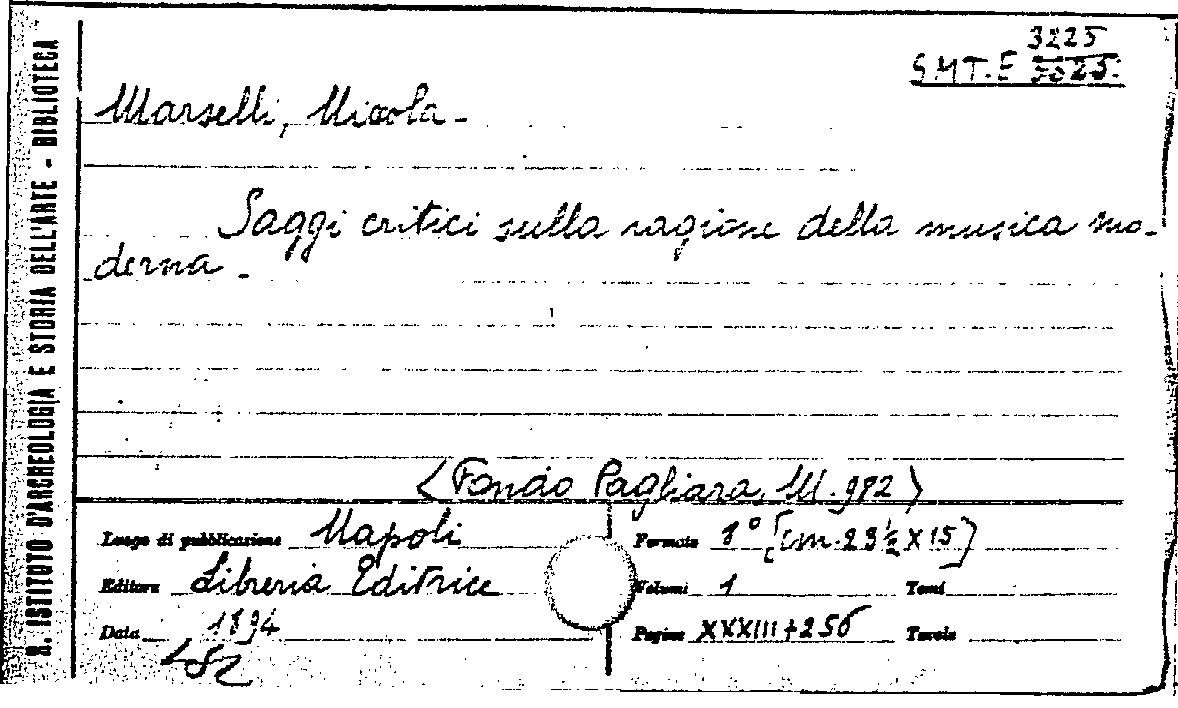 R. ISTITUTO D'ARCHEOLOGIA E STORIA DELL'ARTE - BIBLIOTECA
3225
G.M.T.E 3825.
Marselli, Niccola -
Saggi critici sulla ragione della musica mo-
derna -
<Fondo Pagliara, M. 982>
Luogo di pubblicazione Napoli Formato 8° [cm. 23½ X 15]
Editore Libreria Editrice Volumi 1 Tomi
Data 1894 Pagine XXXIII + 256 Tavole